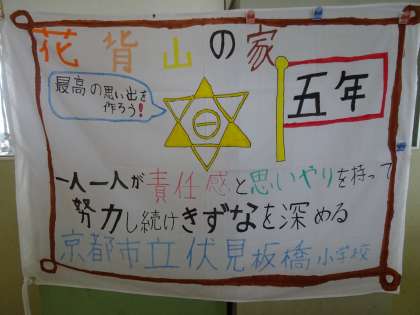 花背山の家
最高の思い出を
作ろう!
五年
一人一人が責任感と思いやりを持って
努力し続けきずなを深める
京都市立伏見板橋小学校